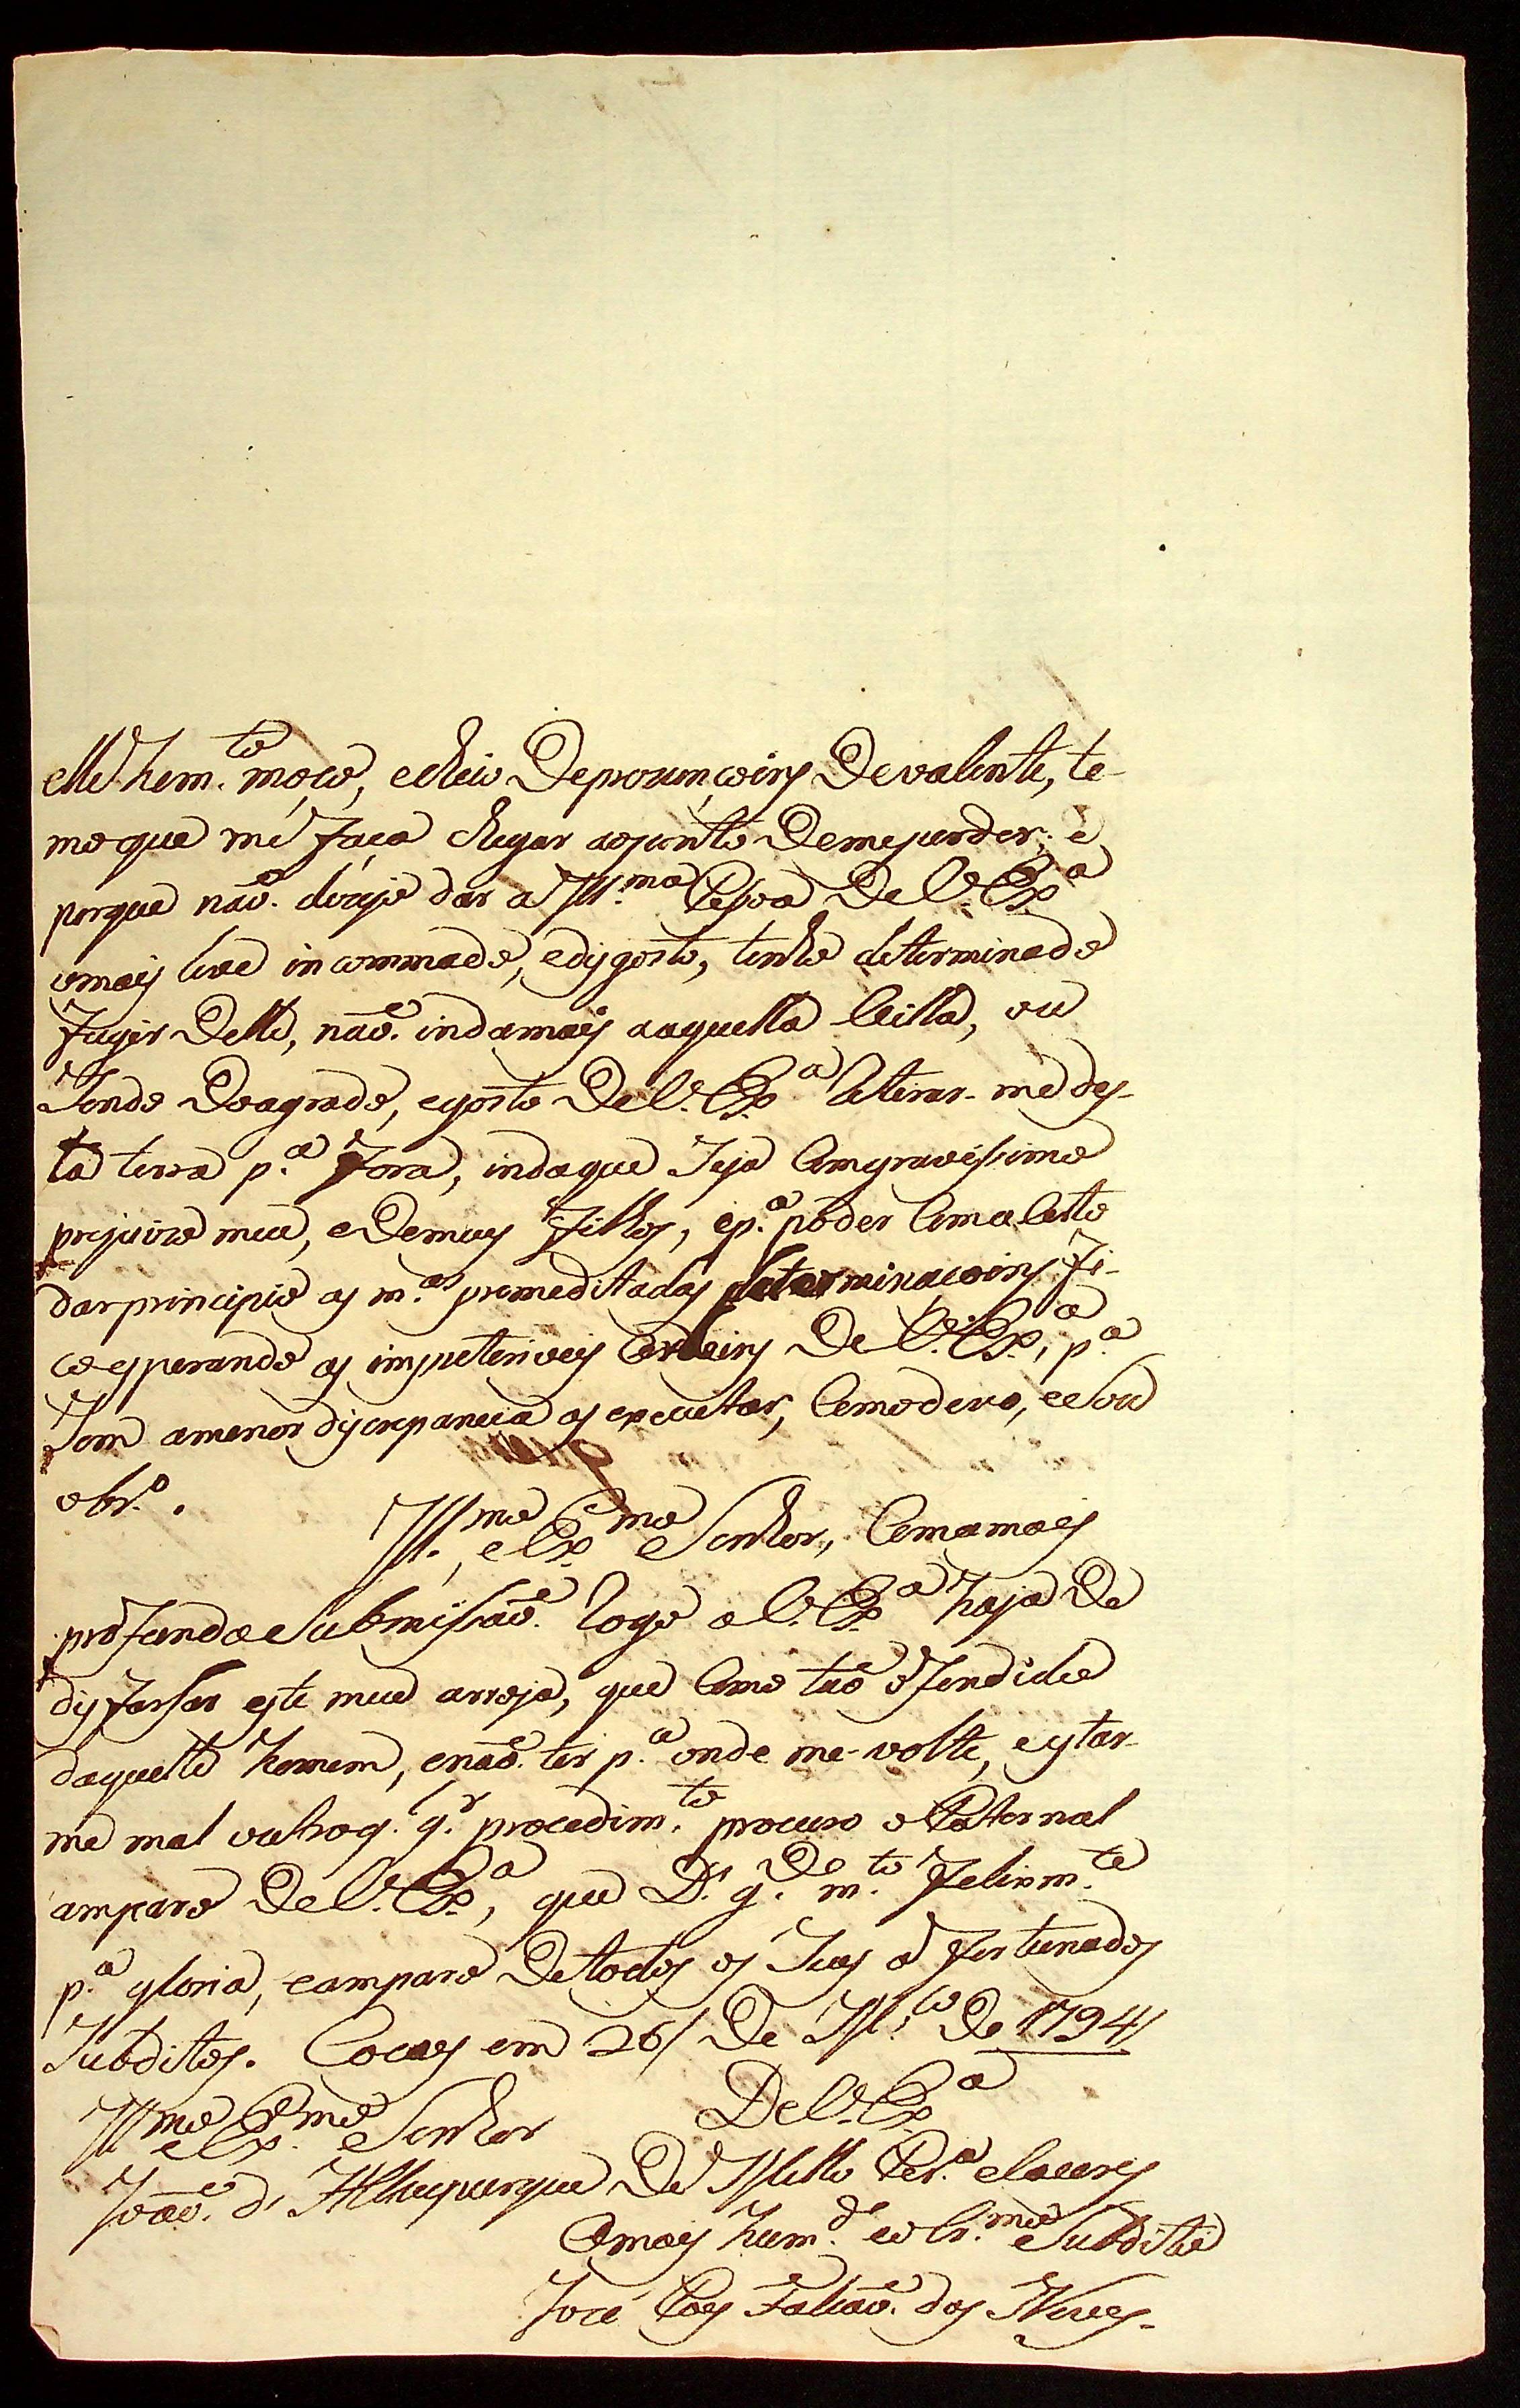 elle hem.to moço, echeio Deprezumçoins Devalente, te-
moque me faça chegar aoponto Demeperder; e
porque naõ. dezejo dar a Ill.ma Pesoa De V. Ex.a
omais leve incommodo, edisgosto, tenho determinado
fugir Delle, naõ. indomais aaquella Villa, ou
Sendo Doagrado, egosto De V. Ex.a Retirar-me des-
ta terra p.a fora, indaque Seja Comgravissimo
prejuizo meu, eDemeus filhos, ep.a poder Comacerto
darprincipio as m.as premeditadas determinacoins fi-
co esperando as impreteriveis Ordeins De V. Ex.a, p.a
Sem amenor discrepancia as executar, Comodevo, eeSou
obr.o.
Ill.mo, e Ex.mo Senhor, Comamais
profundaeSubmissaõ. Rogo a V. Ex.a haja De
disfarsar este meu arrojo, que Como taõ offendido
daquelle homem, enaõ. ter p.a onde me-volte, eestar-
me mal outroq. q.r procedim.to procuro oPaternal
amparo De V. Ex.a, que D.s g.De m.to felizm.te
p.a gloria, eamparo Detodos os Seus afortunados
Subditos. Cocaes em 26/ De M.ço De 1794/
De V. Ex.a
Ill.mo e Ex.mo Senhor
Joaõ. d'Albuquerque De Mello Per.a eCaceres
Omais hum.de eobr.mo Subdito
José Paes Falcaõ. das Neves-